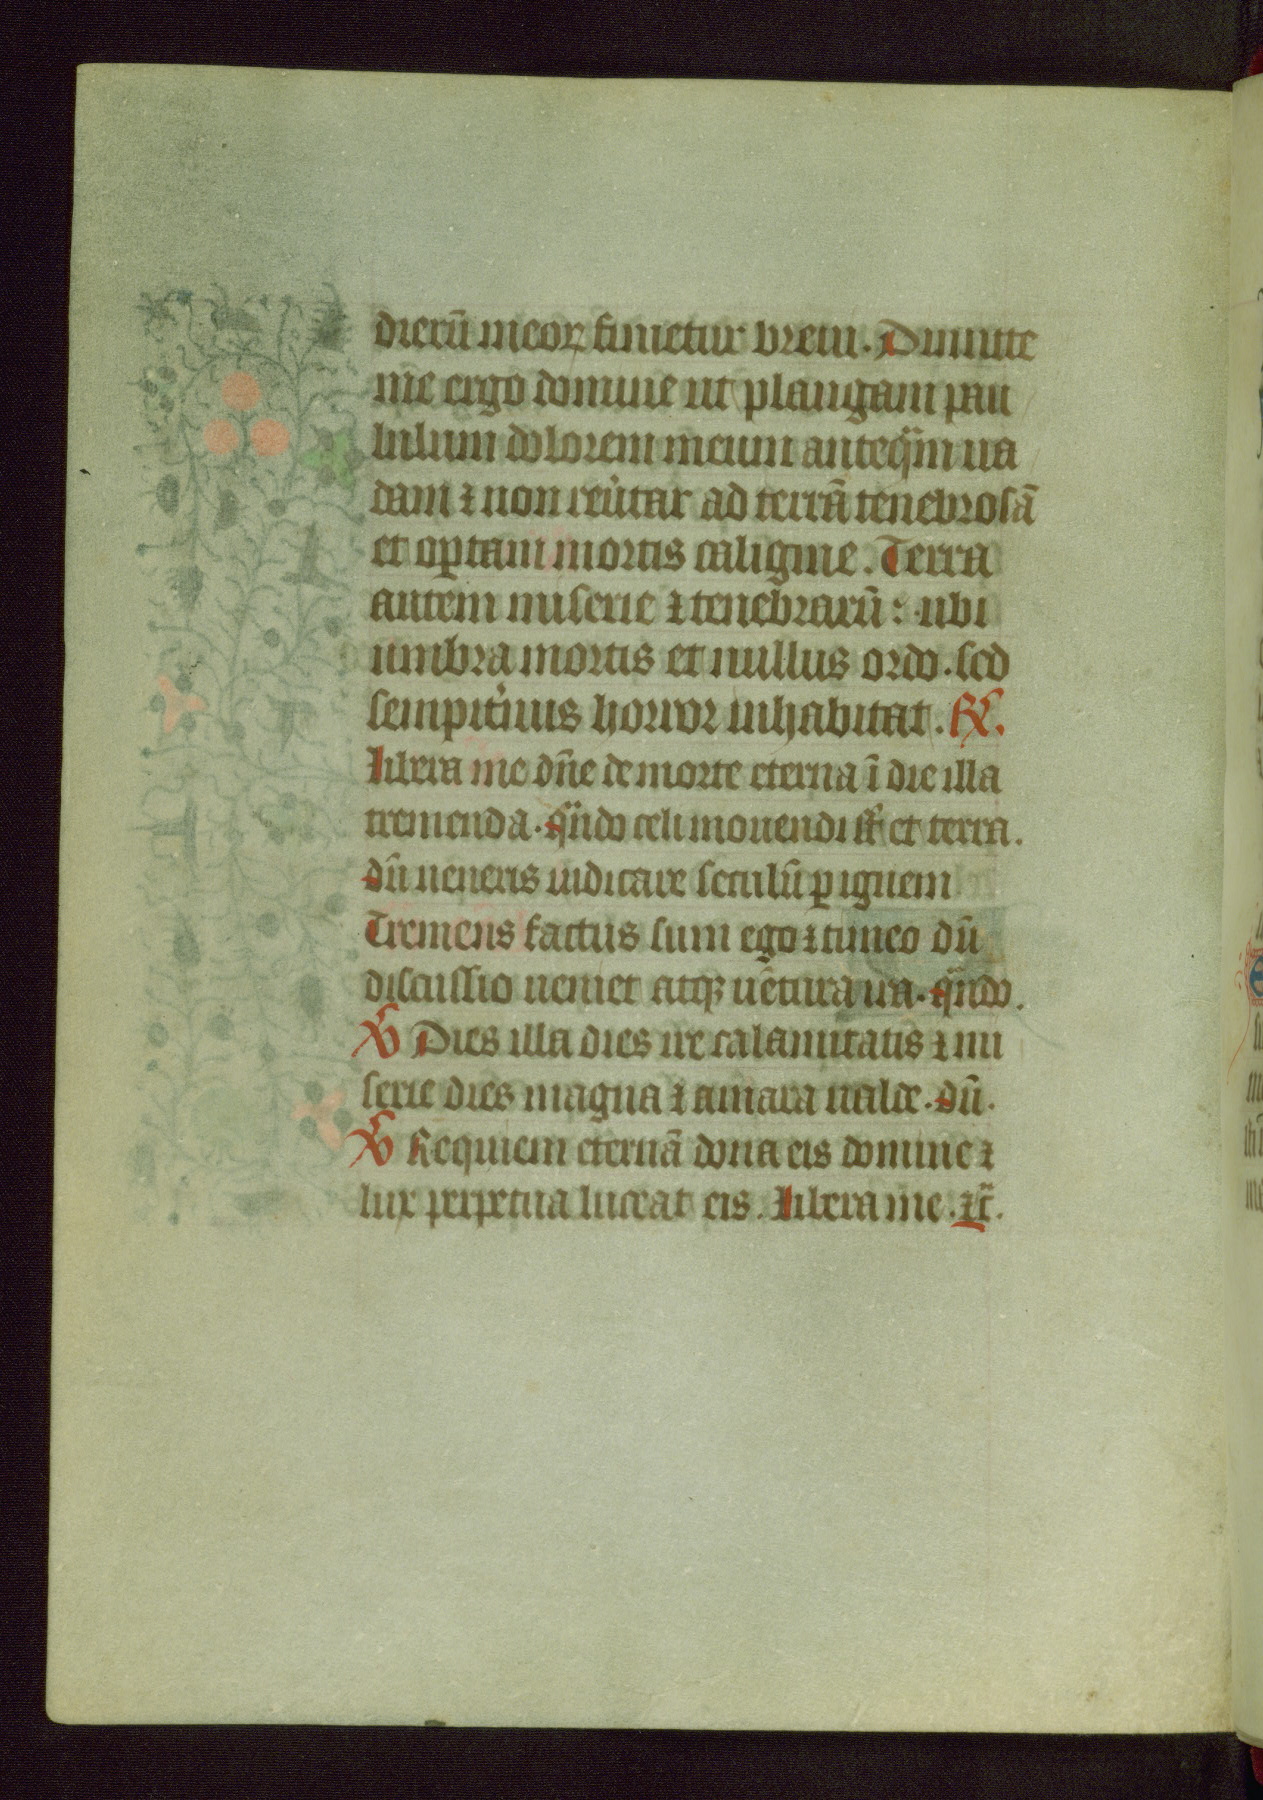 dierū meoꝝ finietur breui. Dimitte
me ergo domine ut plangam pau
lulum dolorem meum anteq̄m ua
dam ⁊ non reūtar ad terrā tenebrosā
et oꝑtam mortis caligine. Terra
autem miserie ⁊ tenebrarū: ubi
umbra mortis et nullus ordo. sed
sempit̾nus horror inhabitat. R̸.
Libera me dn̄e de morte eterna ī die illa
tremenda. qn̄do celi mouendi st̄ et terra.
dū ueneris iudicare seculū ꝑ ignem
Tremens factus sum ego ⁊ timeo dū
discussio uenerit atqꝫ uētura ira. qn̄do.
℣ Dies illa dies ire calamitatis ⁊ mi
serie dies magna ⁊ amara ualde. dū.
℣ Requiem eternā dona eis domine ⁊
lux perpetua luceat eis. Libera me. ⁊c̄.